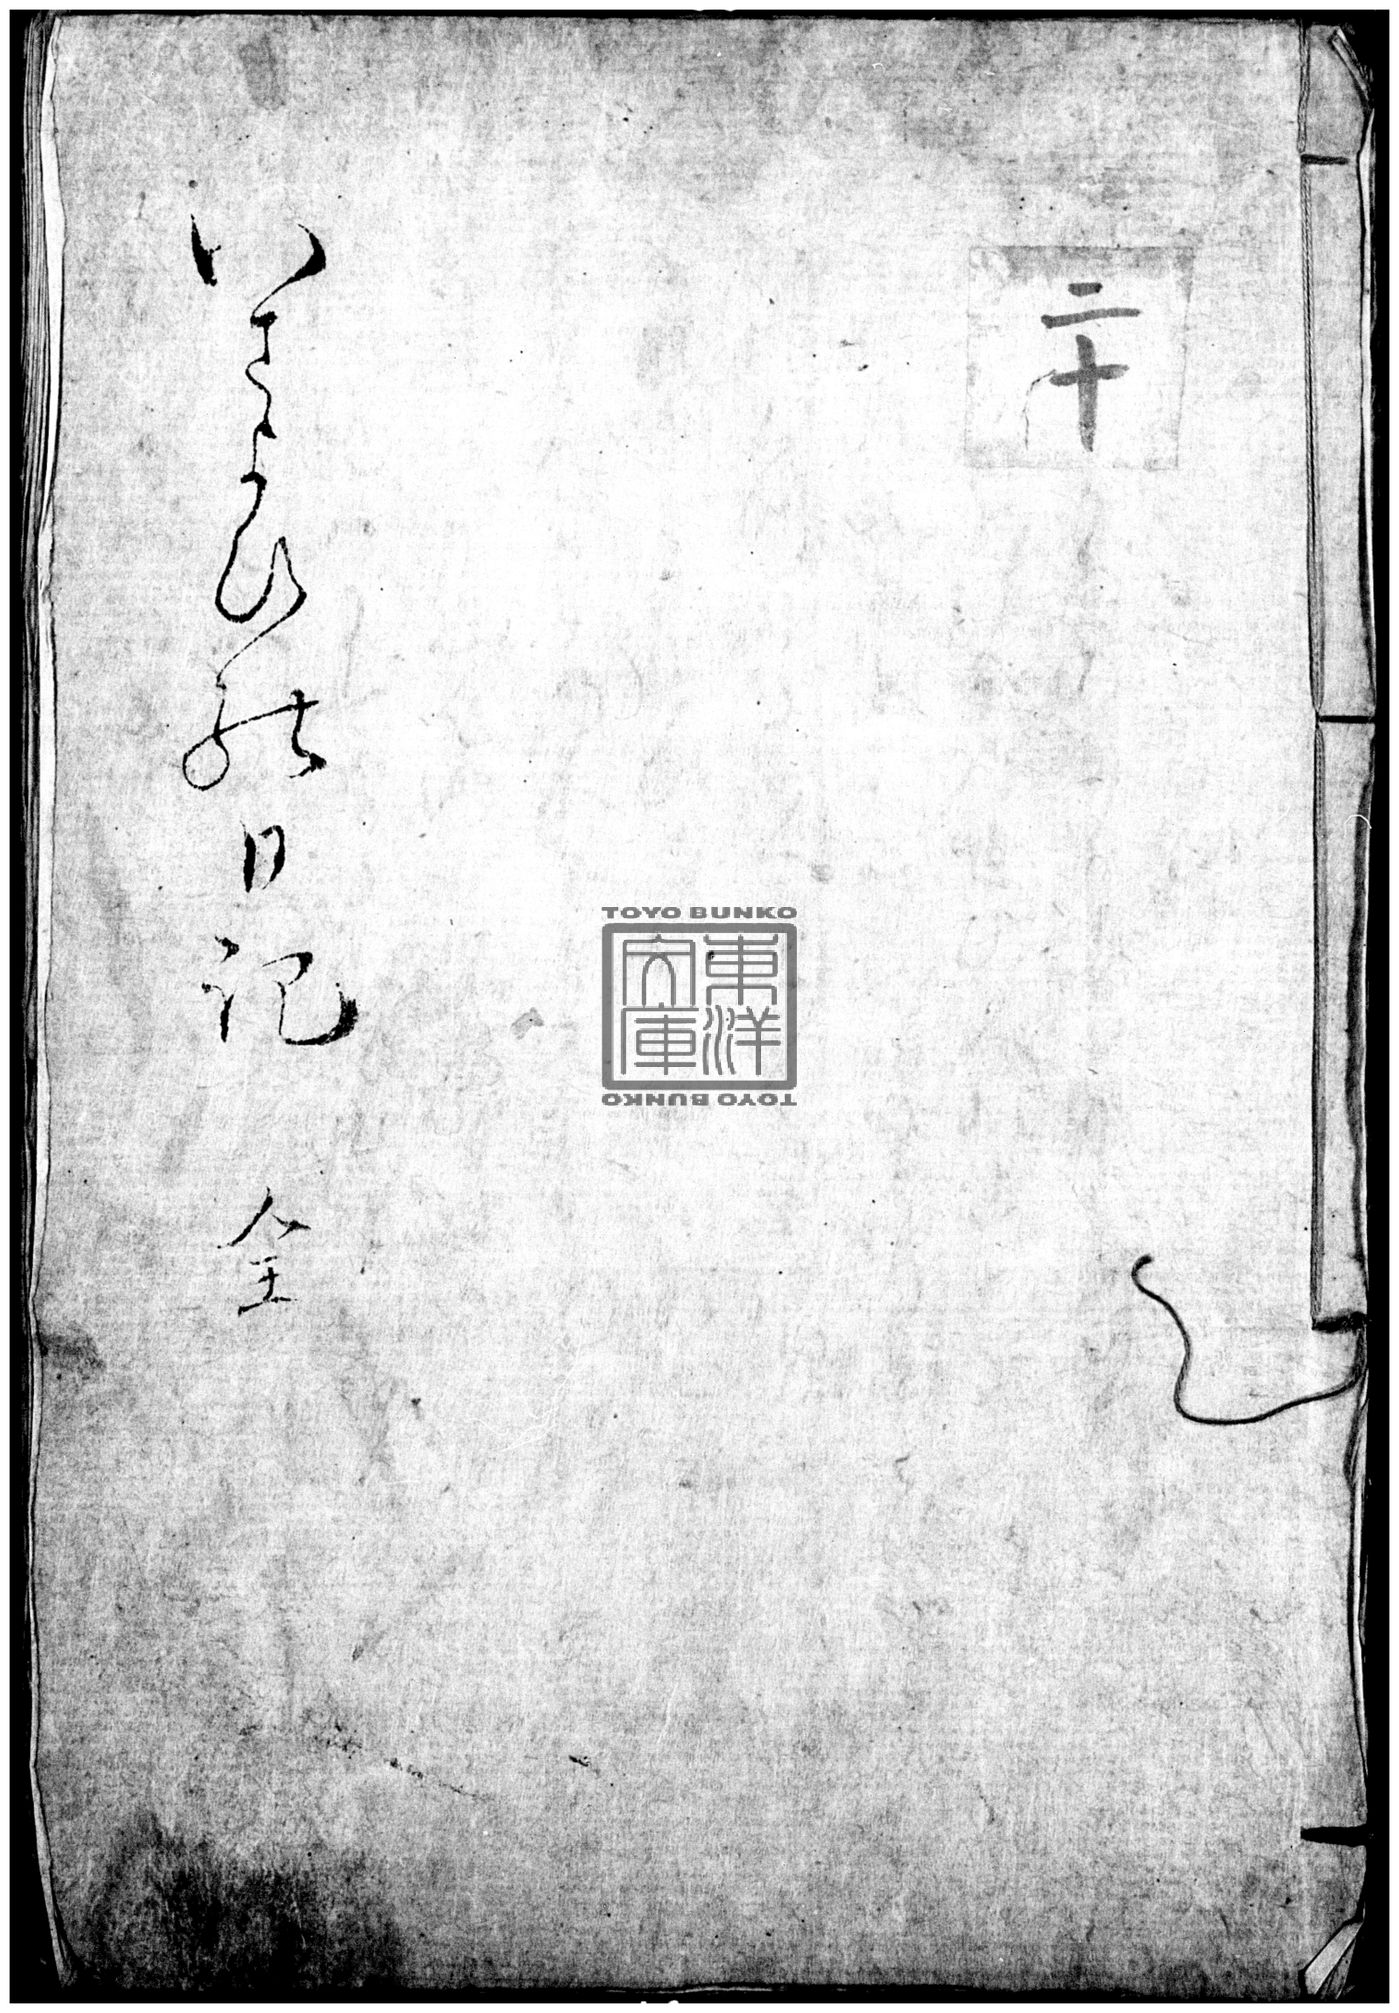 二十
いさよひの日記 全
TOYO BUNKO
東洋
文庫
TOYO BUNKO